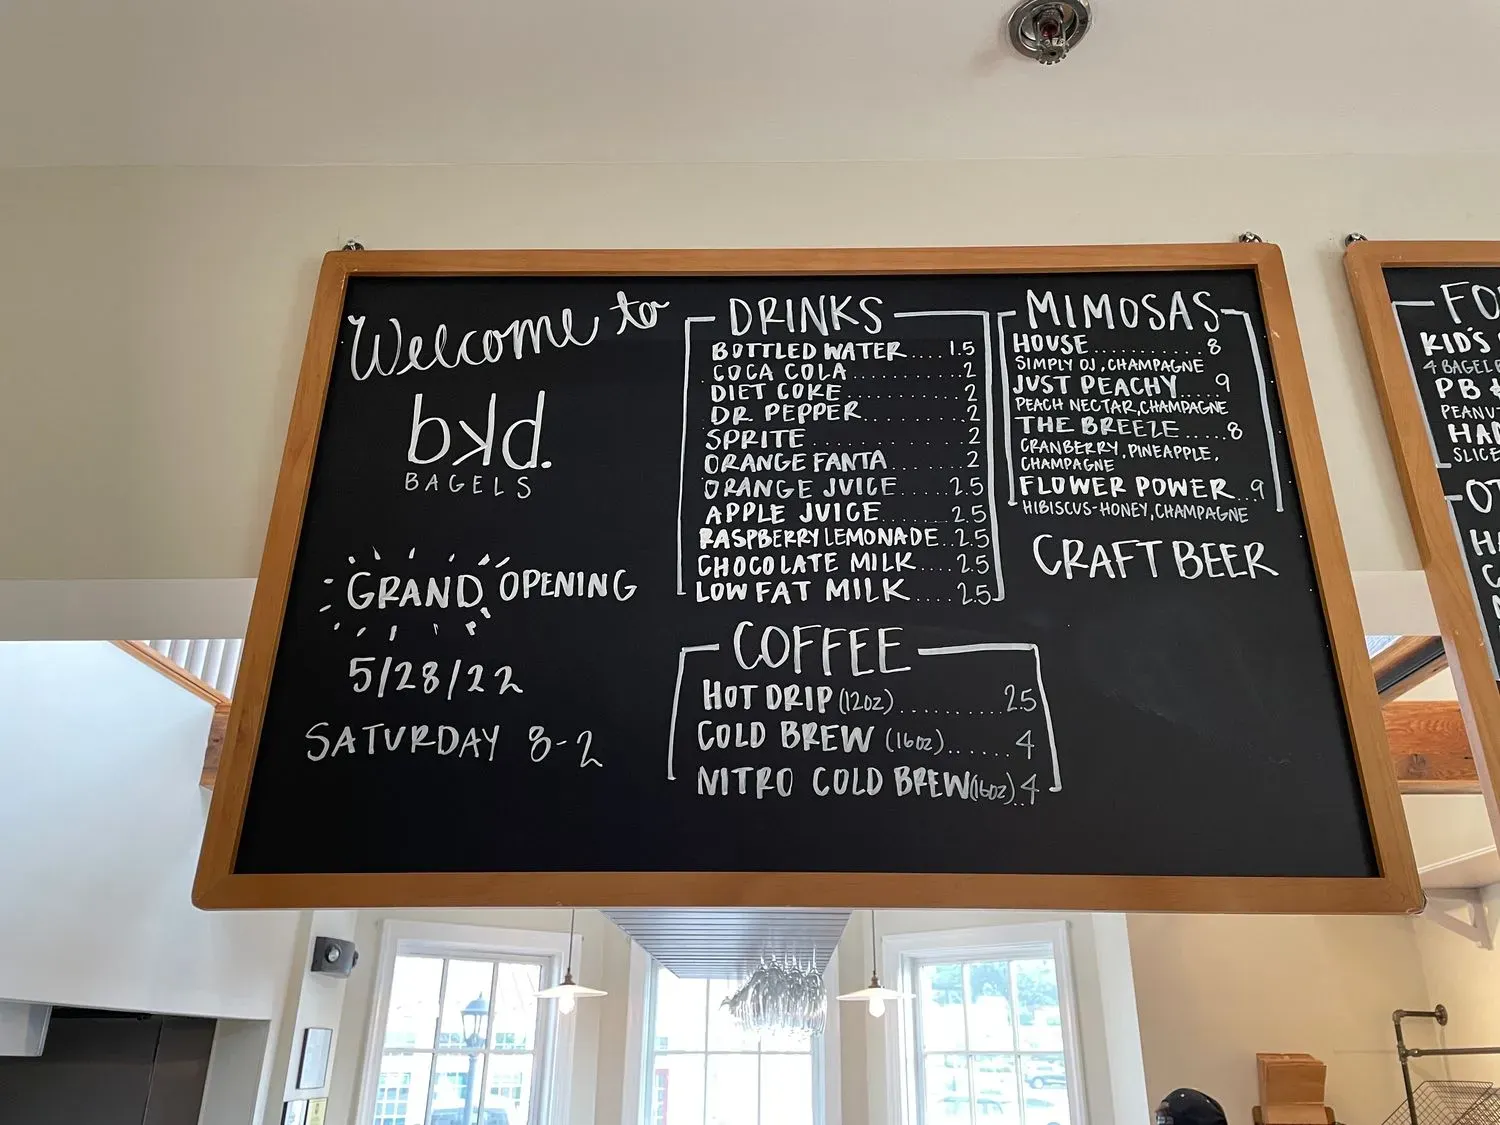 Welcome to
bkd.
BAGELS
GRAND OPENING
5/28/22
SATURDAY 8-2
DRINKS
BOTTLED WATER....1.5
COCA COLA............2
DIET COKE............2
DR PEPPER...........2
SPRITE..............2
ORANGE FANTA......2
ORANGE JUICE.....2.5
APPLE JUICE.......2.5
RASPBERRY LEMONADE..2.5
CHOCOLATE MILK....2.5
LOW FAT MILK....2.5
COFFEE
HOT DRIP (12oz)..........2.5
COLD BREW (16oz).......4
NITRO COLD BREW (16oz)..4
MIMOSAS
HOUSE............8
SIMPLY OJ, CHAMPAGNE
JUST PEACHY...9
PEACH NECTAR, CHAMPAGNE
THE BREEZE.....8
CRANBERRY, PINEAPPLE,
CHAMPAGNE
FLOWER POWER..9
HIBISCUS-HONEY, CHAMPAGNE
CRAFT BEER
KID'S
4 BAGEL
PB